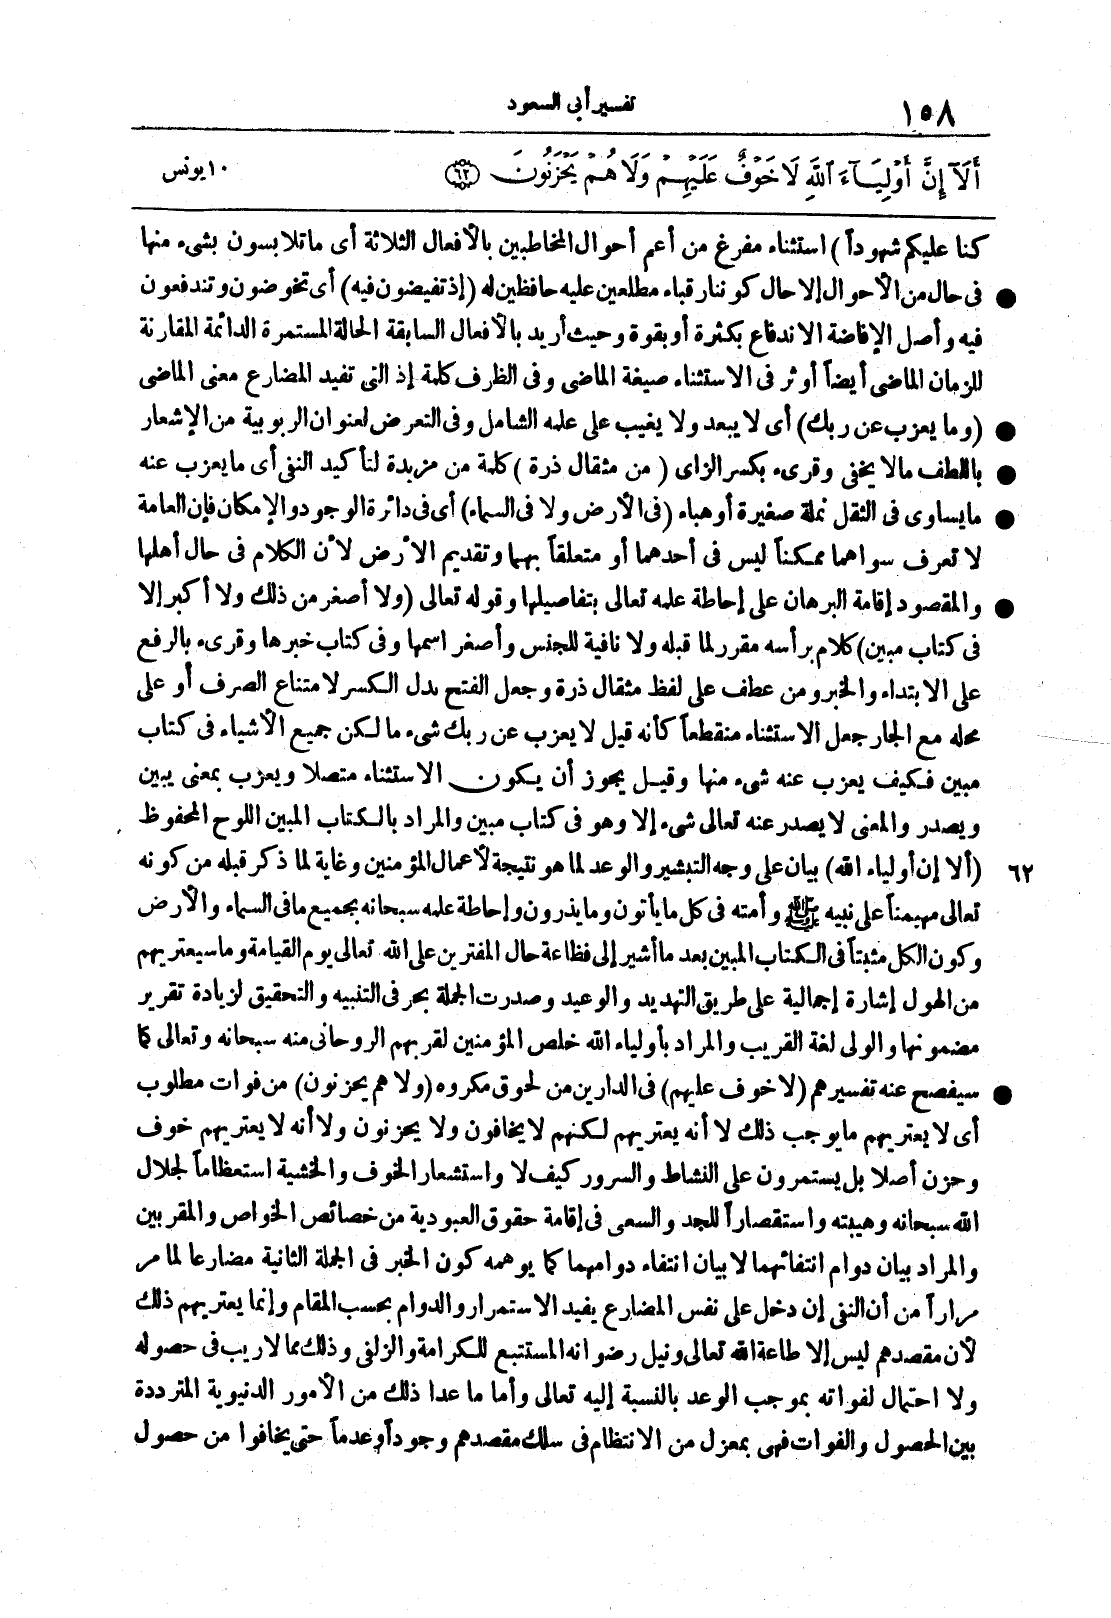 ١٥٨
تفسير أبى السعود
أَلَآ إِنَّ أَوْلِيَآءَ ٱللَّهِ لَا خَوْفٌ عَلَيْهِمْ وَلَا هُمْ يَحْزَنُونَ ﴿٦٢﴾
١٠ يونس
كنا عليكم شهوداً ) استثناء مفرغ من أعم أحوال المخاطبين بالأفعال الثلاثة أى ماتلابسون بشىء منها
● فى حال من الأحوال إلا حال كوننا رقباء مطلعين عليه حافظين له (إذ تفيضون فيه) أى تخوضون وتندفعون
فيه وأصل الإفاضة الاندفاع بكثرة أو بقوة وحيث أريد بالأفعال السابقة الحالة المستمرة الدائمة المقارنة
للزمان الماضى أيضاً أوثر فى الاستثناء صيغة الماضى وفى الظرف كلمة إذ التى تفيد المضارع معنى الماضى
● (وما يعزب عن ربك) أى لا يبعد ولا يغيب على علمه الشامل وفى التعرض لعنوان الربوبية من الإشعار
● باللطف مالا يخفى وقرىء بكسر الزاى ( من مثقال ذرة ) كلمة من مزيدة لتأكيد النفى أى ما يعزب عنه
● مايساوى فى الثقل نملة صغيرة أو هباء (فى الأرض ولا فى السماء) أى فى دائرة الوجود والإمكان فإن العامة
لا تعرف سواهما ممكناً ليس فى أحدهما أو متعلقاً بهما وتقديم الأرض لأن الكلام فى حال أهلها
● والمقصود إقامة البرهان على إحاطة علمه تعالى بتفاصيلها وقوله تعالى (ولا أصغر من ذلك ولا أكبر إلا
فى كتاب مبين) كلام برأسه مقرر لما قبله ولا نافية للجنس وأصغر اسمها وفى كتاب خبرها وقرىء بالرفع
على الابتداء والخبر ومن عطف على لفظ مثقال ذرة وجعل الفتح بدل الكسر لامتناع الصرف أو على
محله مع الجار جعل الاستثناء منقطعاً كأنه قيل لا يعزب عن ربك شىء ما لكن جميع الأشياء فى كتاب
مبين فكيف يعزب عنه شىء منها وقيل يجوز أن يكون الاستثناء متصلا ويعزب بمعنى يبين
ويصدر والمعنى لا يصدر عنه تعالى شىء إلا وهو فى كتاب مبين والمراد بالكتاب المبين اللوح المحفوظ
٦٢ (ألا إن أولياء الله) بيان على وجه التبشير والوعد لما هو نتيجة لأعمال المؤمنين وغاية لما ذكر قبله من كونه
تعالى مهيمناً على نبيه ﷺ وأمته فى كل ما يأتون وما يذرون وإحاطة علمه سبحانه بجميع مافى السماء والأرض
وكون الكل مثبتاً فى الكتاب المبين بعد ما أشير إلى فظاعة حال المفترين على الله تعالى يوم القيامة وما سيعتريهم
من الهول إشارة إجمالية على طريق التهديد والوعيد وصدرت الجملة بحرفى التنبيه والتحقيق لزيادة تقرير
مضمونها والولى لغة القريب والمراد بأولياء الله خلص المؤمنين لقربهم الروحانى منه سبحانه وتعالى كما
● سيفصح عنه تفسيرهم (لا خوف عليهم) فى الدارين من لحوق مكروه (ولا هم يحزنون) من فوات مطلوب
أى لا يعتريهم مايوجب ذلك لا أنه يعتريهم لكنهم لا يخافون ولا يحزنون ولا أنه لا يعتريهم خوف
وحزن أصلا بل يستمرون على النشاط والسرور كيف لا واستشعار الخوف والخشية استعظاماً لجلال
الله سبحانه وهيبته واستقصاراً للجد والسعى فى إقامة حقوق العبودية من خصائص الخواص والمقربين
والمراد بيان دوام انتفائهما لا بيان انتفاء دوامهما كما يوهمه كون الخبر فى الجملة الثانية مضارعا لما مر
مراراً من أن النفى إن دخل على نفس المضارع يفيد الاستمرار والدوام بحسب المقام وإنما يعتريهم ذلك
لأن مقصدهم ليس إلا طاعة الله تعالى ونيل رضوانه المستتبع للكرامة والزلفى وذلك مما لاريب فى حصوله
ولا احتمال لفواته بموجب الوعد بالنسبة إليه تعالى وأما ما عدا ذلك من الأمور الدنيوية المترددة
بين الحصول والفوات فهى بمعزل من الانتظام فى سلك مقصدهم وجوداً وعدماً حتى يخافوا من حصول